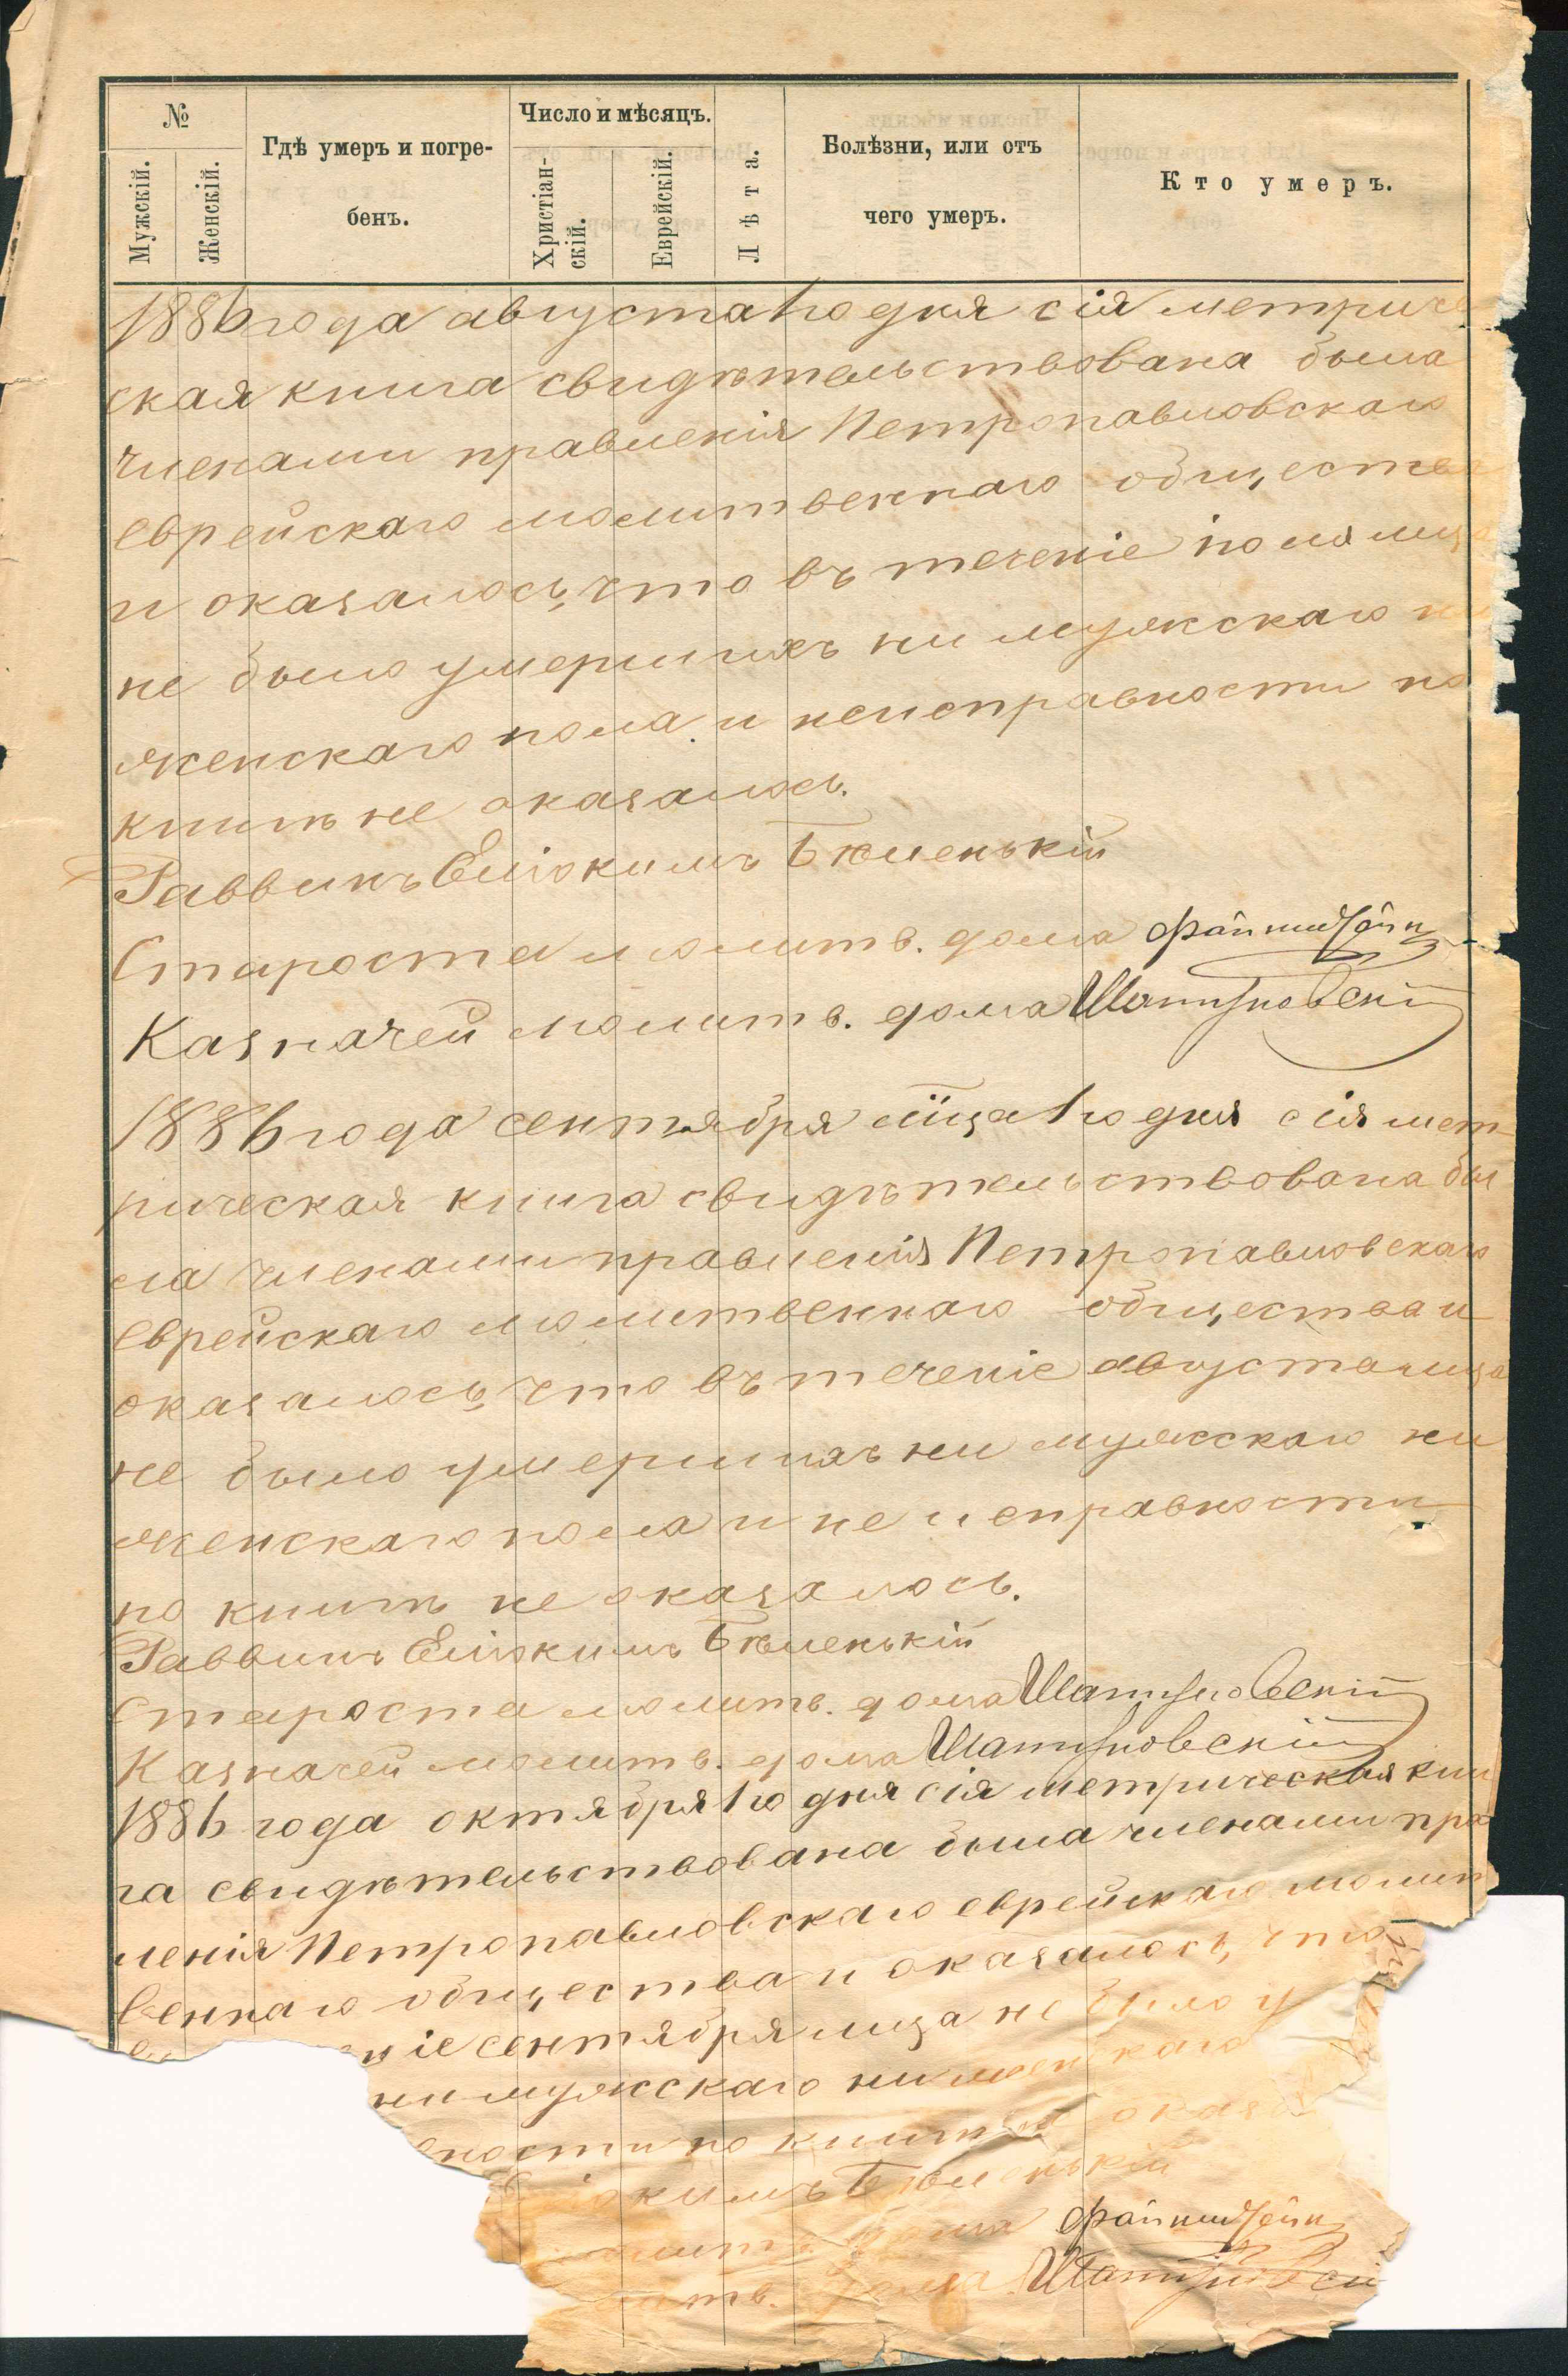 №
Мужскій.
Женскій.
Гдѣ умеръ и погре-
бенъ.
Число и мѣсяцъ.
Христіан-
скій.
Еврейскій.
Лѣта.
Болѣзни, или отъ
чего умеръ.
Кто умеръ.
1886 года августа 1го дня сія метриче
ская книга свидѣтельствована была
членами правленія Петропавловскаго
еврейскаго молитвеннаго общества
и оказалось, что въ теченіе іюля мца
не было умершихъ ни мужскаго ни
женскаго пола и неисправности по
книгѣ не оказалось.
Раввинъ Еліокимъ Бѣленькій
Староста молитв. дома
Казначей молитв. дома
1886 года сентября мца 1го дня сія мет
рическая книга свидѣтельствована бы
ла членами правленія Петропавловскаго
еврейскаго молитвеннаго общества и
оказалось, что въ теченіе августа мца
не было умершихъ ни мужскаго ни
женскаго пола и неисправности
по книгѣ не оказалось.
Раввинъ Еліокимъ Бѣленькій
Староста молитв. дома
Казначей молитв. дома
1886 года октября 1го дня сія метрическая кни
га свидѣтельствована была членами прав
ленія Петропавловскаго еврейскаго молит
веннаго общества и оказалось, что
ніе сентября мца не было у
ни мужскаго ни женскаго
вности по книгѣ не оказа
іокимъ Бѣленькій
молитв. дома
итв. дома